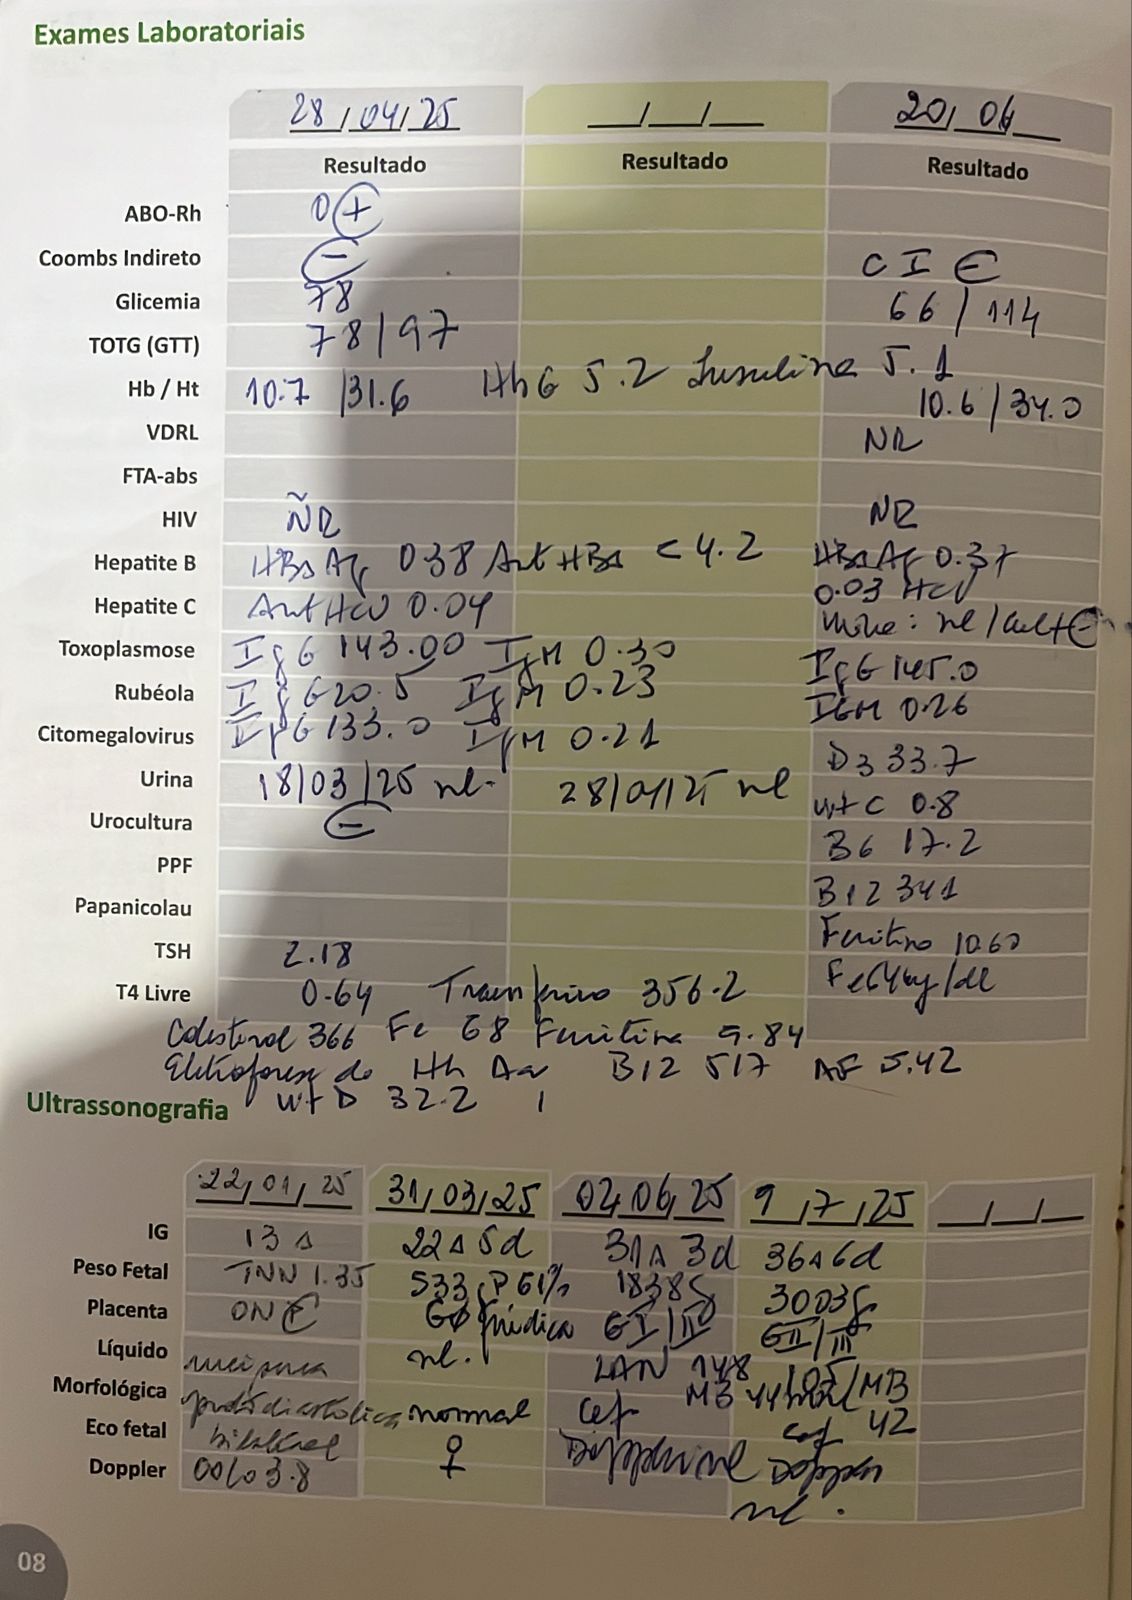 Exames Laboratoriais
28/04/25 __/__/__ 20/06/__
Resultado Resultado Resultado
ABO-Rh O +
Coombs Indireto - C I -
Glicemia 78 66/114
TOTG (GTT) 78/97
Hb / Ht 10.7/31.6 HbG 5.2 Insulina 5.1 10.6/34.0
VDRL NR
FTA-abs
HIV ÑR NR
Hepatite B HBsAg 038 Ant HBs <4.2 HBsAg 0.37
Hepatite C Ant HCV 0.04 0.03 HCV
Toxoplasmose IgG 143.00 IgM 0.30 IgG 145.0
Rubéola IgG 20.5 IgM 0.23 IGM 0.26
Citomegalovirus IgG 133.0 IgM 0.21 D3 33.7
Urina 18/03/25 nl. 28/04/25 nl vit C 0.8
Urocultura - B6 17.2
PPF
Papanicolau B12 341
TSH 2.18 Ferritina 10.60
T4 Livre 0.64 Transferrina 356.2
Colesterol 366 Fe 68 Ferritina 9.84
Eletroforese de Hb AA B12 517 AF 5.42
vit D 32.2
Ultrassonografia
22/01/25 31/03/25 02/06/25 9/7/25 __/__/__
IG 13s 22s 5d 31s 3d 36s 6d
Peso Fetal TNN 1.35 533 P61% 1838g 3003g
Placenta ON + G0 fúndica GI/II GII/III
Líquido nl. LAN 148
Morfológica protodiastólica normal cef MB 44mm /MB 42
Eco fetal bilateral ♀ Doppler nl cef Doppler
Doppler nl.
08